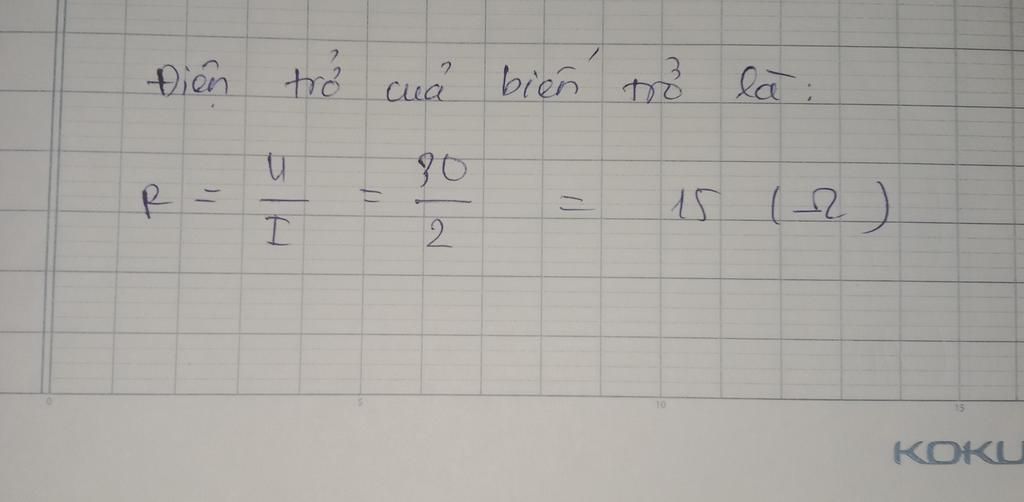 Điện trở cuả biến trở là:
R = U/I = 30/2 = 15 (Ω)
0 5 10 15
KOKU